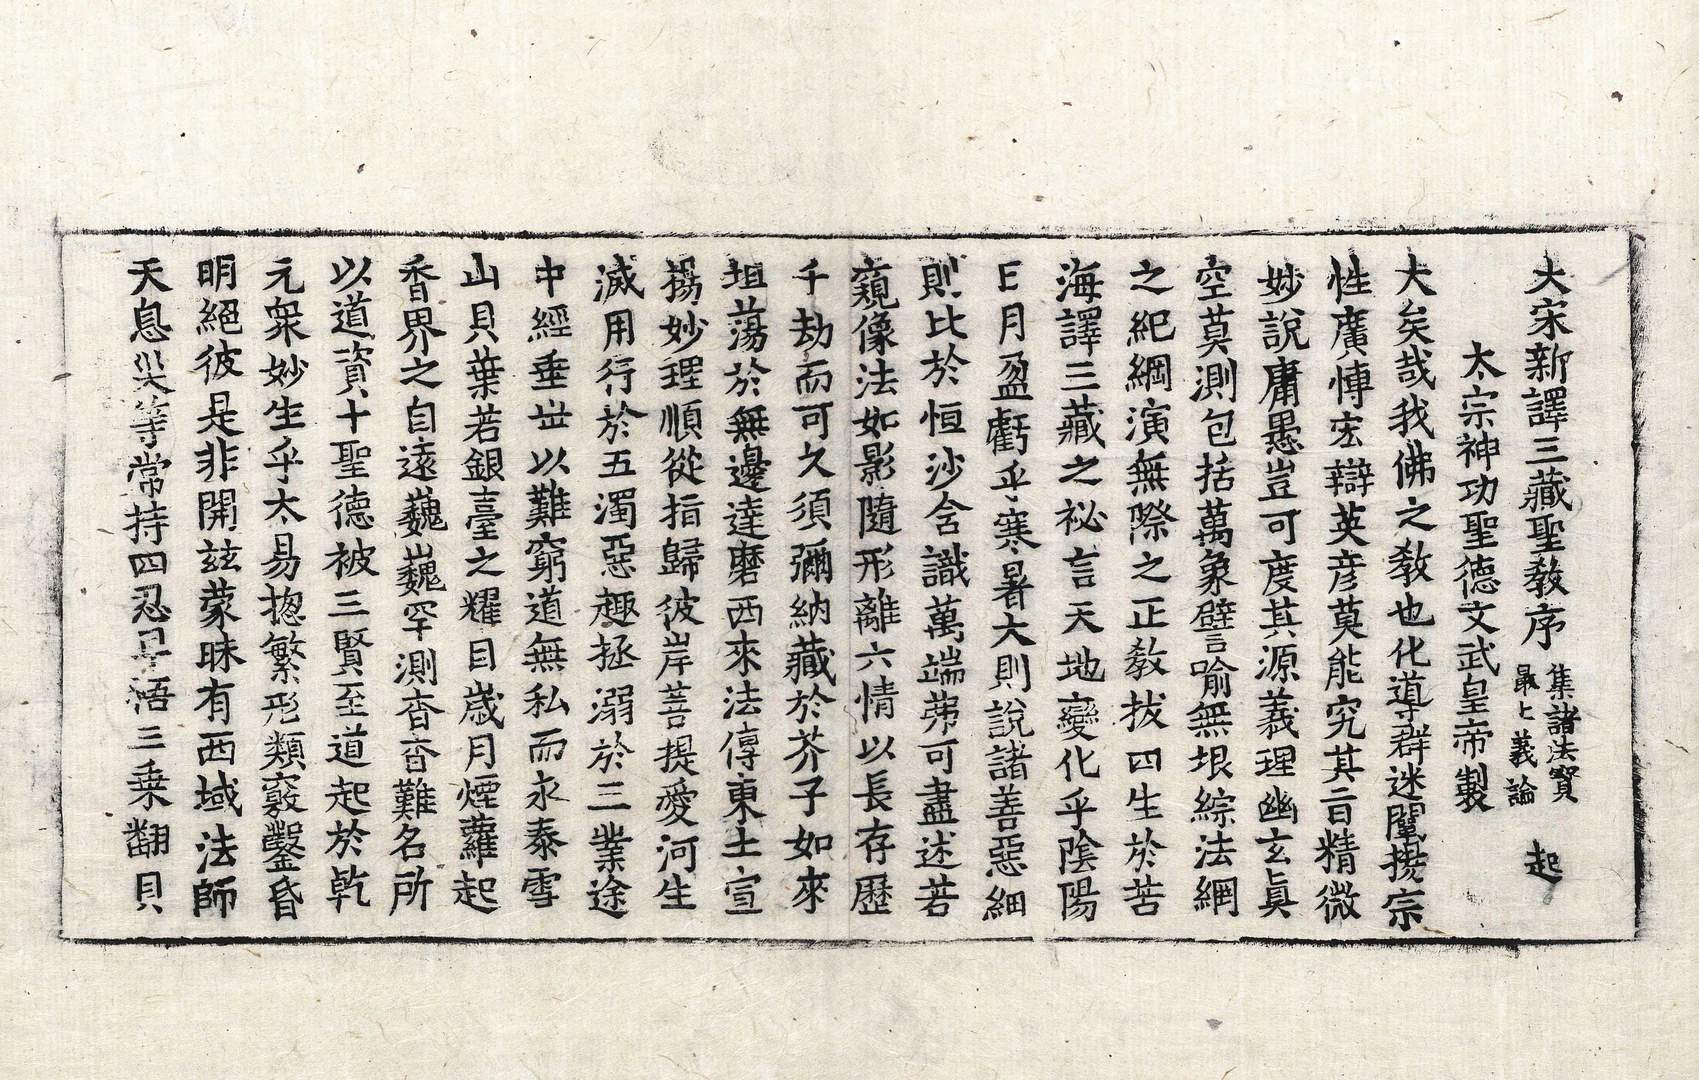 大宋新譯三藏聖教序 集諸法寶最上義論 起
太宗神功聖德文武皇帝製
大矣哉我佛之教也化導群迷闡揚宗
性廣愽宏辯英彦莫能究其旨精微
妙說庸愚豈可度其源義理幽玄眞
空莫測包括萬象譬喻無垠綜法網
之紀綱演無際之正教拔四生於苦
海譯三藏之祕言天地變化乎陰陽
日月盈虧乎寒暑大則說諸善惡細
則比於恒沙含識萬端弗可盡述若
窺像法如影隨形離六情以長存歷
千劫而可久須彌納藏於芥子如來
坦蕩於無邊達磨西來法傳東土宣
揚妙理順從指歸彼岸菩提愛河生
滅用行於五濁惡趣拯溺於三業途
中經垂丗以難窮道無私而永泰雪
山貝葉若銀臺之耀目歲月煙蘿起
香界之自遠巍巍罕測杳杳難名所
以道資十聖德被三賢至道起於乹
元衆妙生乎太易揔繁形類竅鑿昏
明絕彼是非開茲蒙昧有西域法師
天息災等常持四忍早悟三乗翻貝